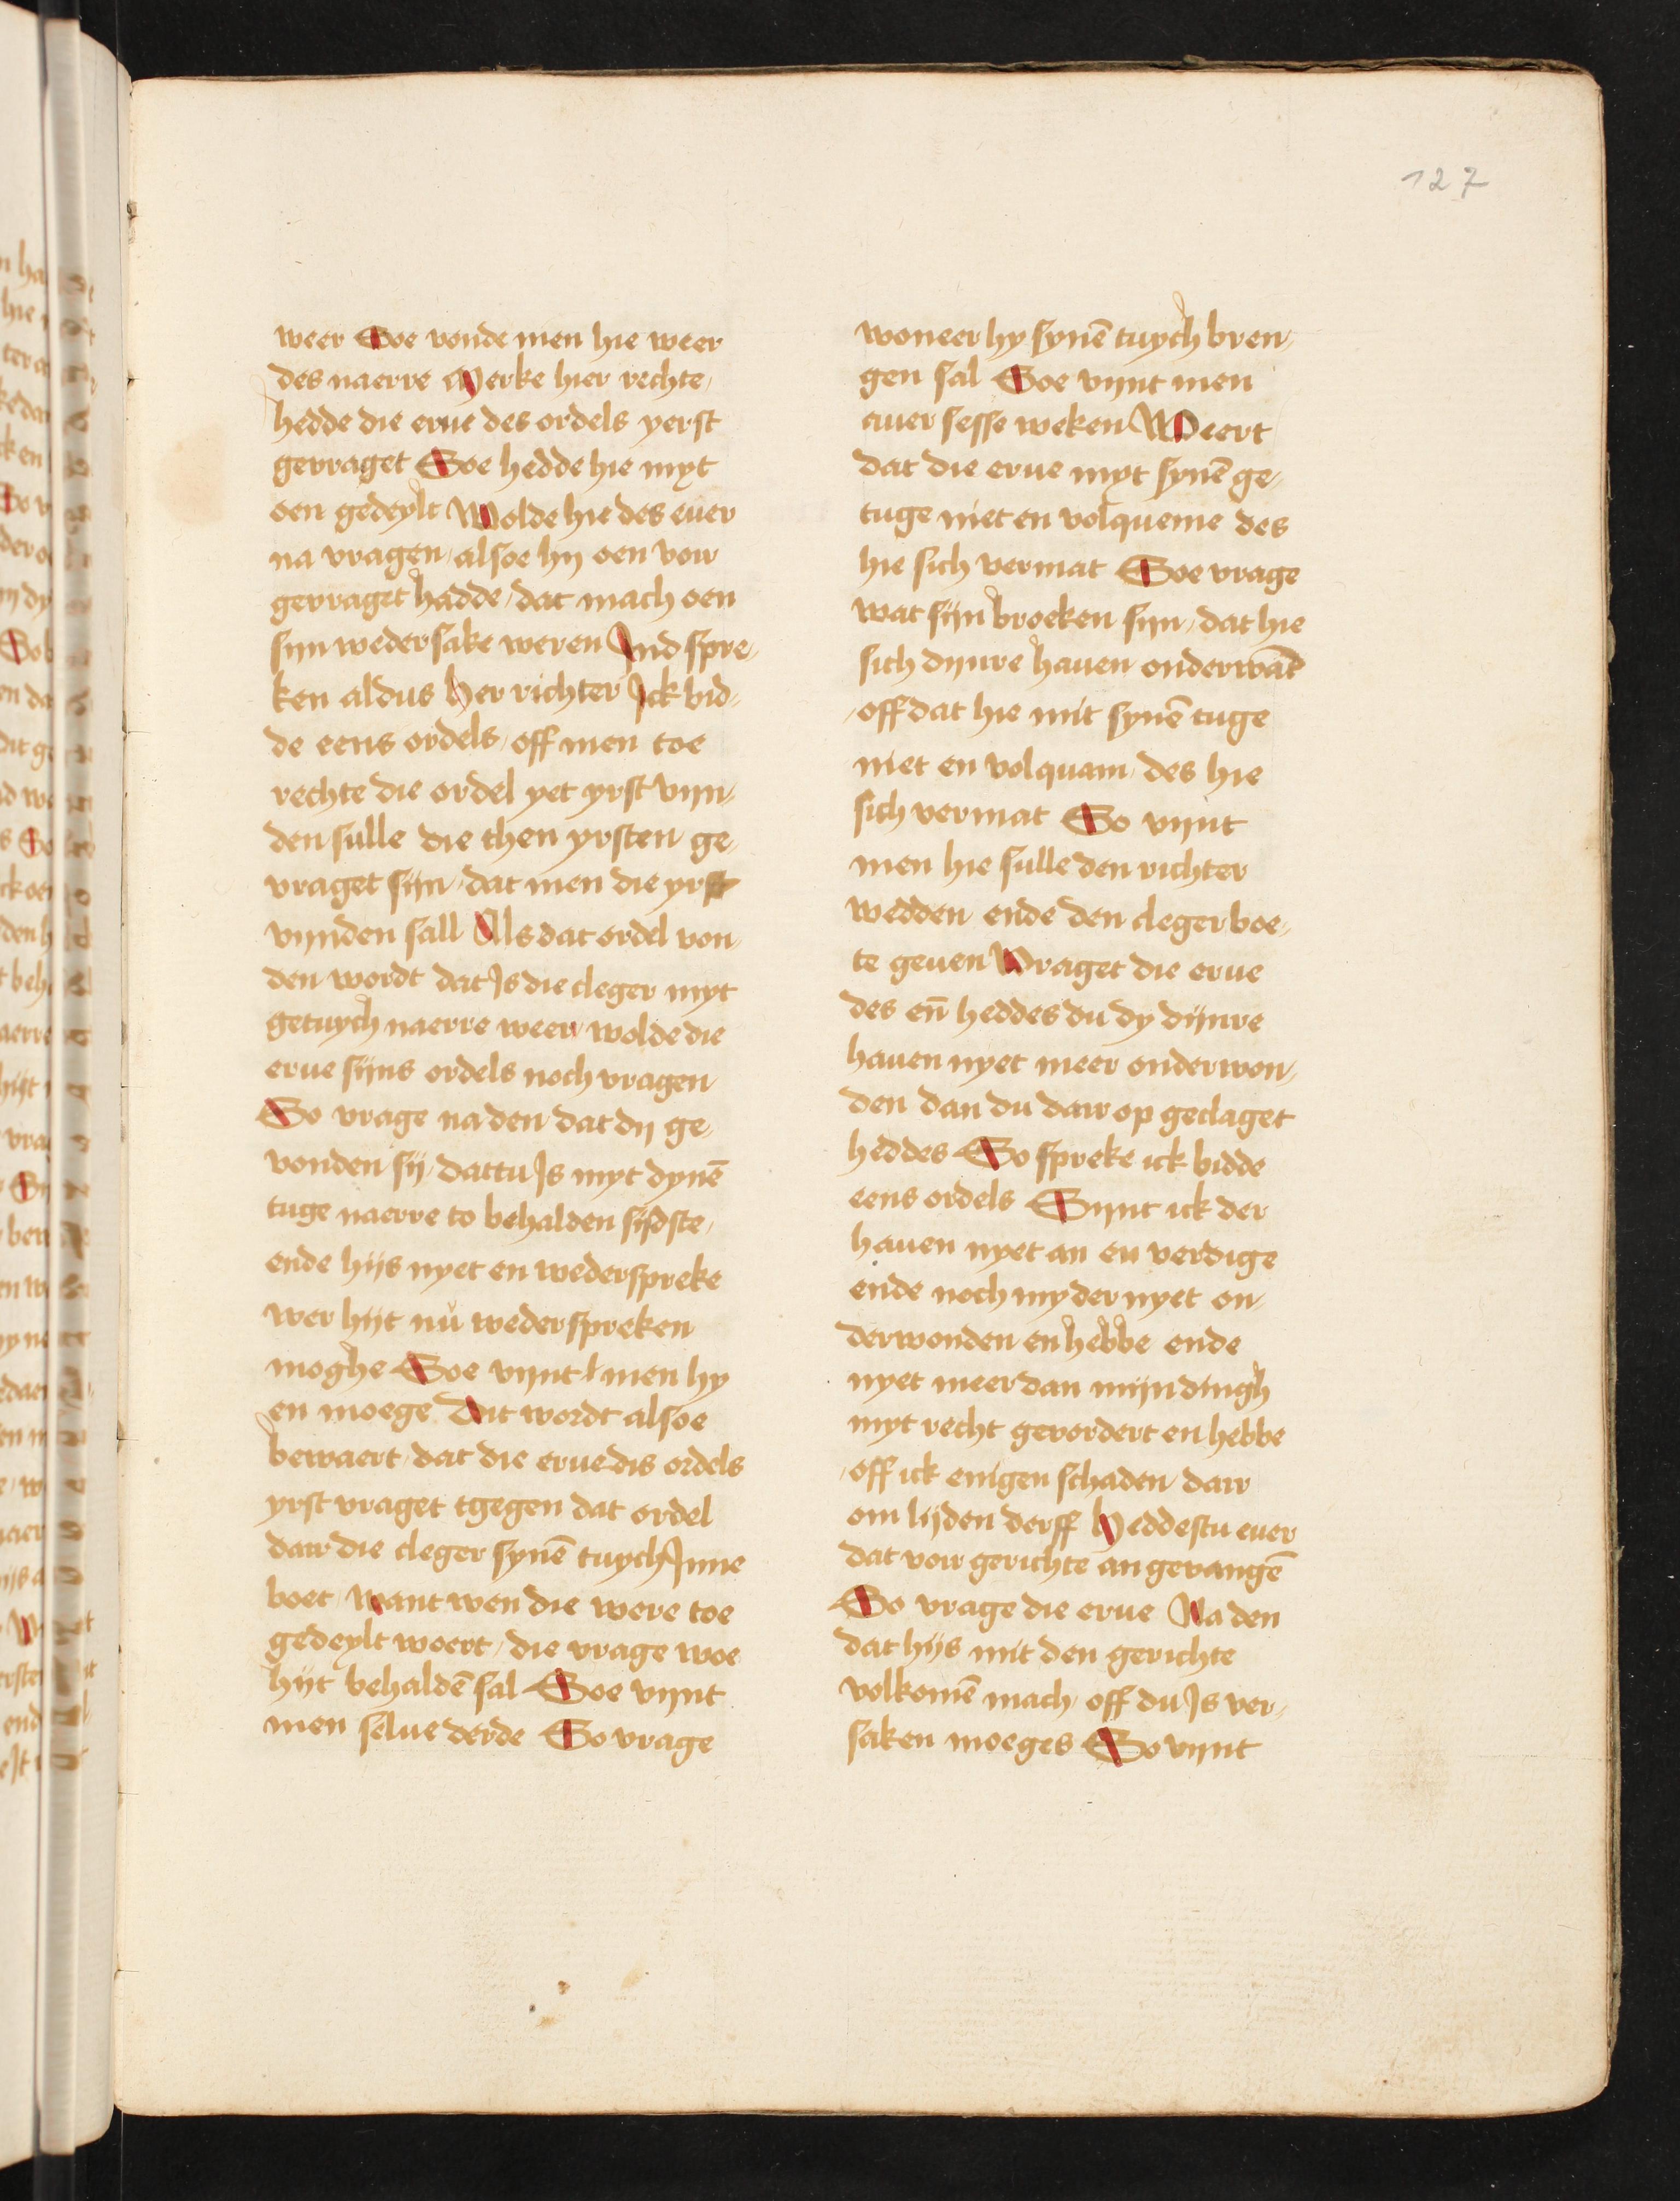 127
weer Soe vonde men hie weer
des naerre Merke hier rechte,
hedde die erue des ordels yerst
gevraget Soe hedde hie myt
oen gedeylt Wolde hie des euer
na vragen, alsoe hij oen voir
gevraget hadde, dat mach oen
sijn wedersake weren Ind spre,
ken aldus Her richter Ick bid,
de eens ordels, off men toe
rechte die ordel yet yrst vijn,
den sulle die then yrsten ge,
vraget sijn, dat men die yrst
vijnden sall Als dat ordel von,
den wordt dat Is die cleger myt
getuych naerre weer, wolde die
erue sijns ordels noch vragen
So vrage na den dat dij ge,
vonden sij, dattu Is myt dynē
tuge naerre to behalden sijdste,
ende hijs nyet en wederspreke
wer hijt nŭ wederspreken
moghe Soe vijnt men hy
en moege Dit wordt alsoe
bewaert, dat die erue dis ordels
yrst vraget tgegen dat ordel
dair die cleger synē tuych Inne
boet, want wen die were toe
gedeylt woert, die vrage woe
hijt behaldē sal Soe vijnt
men selue derde So vrage
woneer hy synē tuych bren,
gen sal Soe vijnt men
auer sesse weken Weert
dat die erue myt synē ge,
tuge niet en volqueme des
hie sich vermat Soe vrage
wat sijn broeken sijn, dat hie
sich dijnre hauen onderwāt
, off dat hie mit synē tuge
niet en volquam, des hie
sich vermat So vijnt
men hie sulle den richter
wedden ende den cleger boe,
te geuen Vraget die erue
des eñ heddes du dy dijnre
hauen nyet meer onderwon,
den dan du dair op geclaget
heddes So spreke ick bidde
eens ordels Sijnt ick der
hauen nyet an en verdige
ende noch my der nyet on,
derwonden en hebbe ende
nyet meer dan mijn dingh
myt recht gevordert en hebbe
, off ick enigen schaden dair
om lijden derff Heddestu euer
dat voir gerichte an gevangē
So vrage die erue Na den
dat hijs mit den gerichte
volkomē mach, off du Is ver,
saken moeges So vijnt